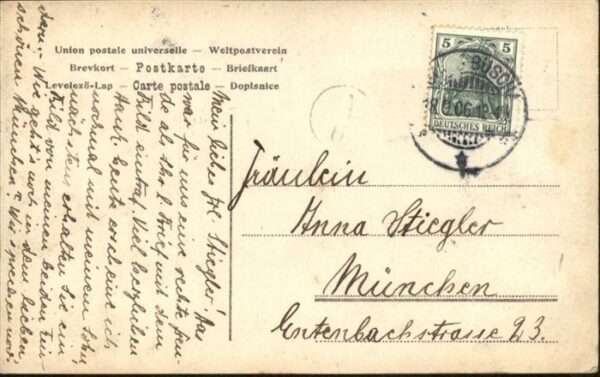 Union postale universelle – Weltpostverein
Brevkort – Postkarte – Briefkaart
Levelező-Lap – Carte postale – Dopisnice
5 5
DEUTSCHES REICH
06
Fräulein
Anna Stiegler
München
Entenbachstrasse 23.
Mein liebes Frl. Stiegler! Das
war für uns eine rechte Freu-
de als Ihr l. Brief mit dem
Bild eintraf. Viel herzlichen
Dank. Heute erscheine ich
nochmal mit meinem Sohn,
nächstens erhalten Sie ein
Bild von meinen beiden
Wie geht's noch in dem lieben
schönen München? Wir sprechen noch